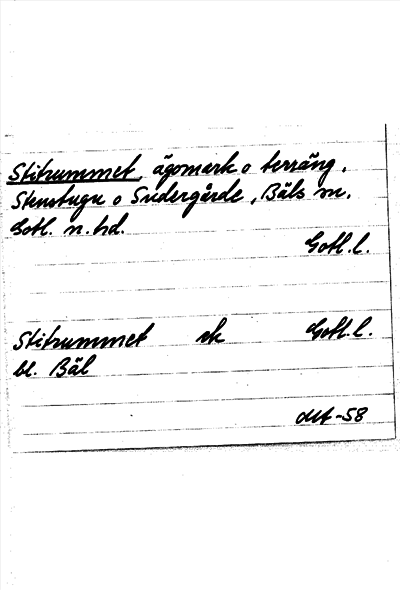 Stitrummet, ägomark o terräng.
Stenstugu o Sudergårde, Bäls sn.
Gotl. n. hd.
Gotl. l.
Stitrummet ek Gotl. l.
bl. Bäl
-58